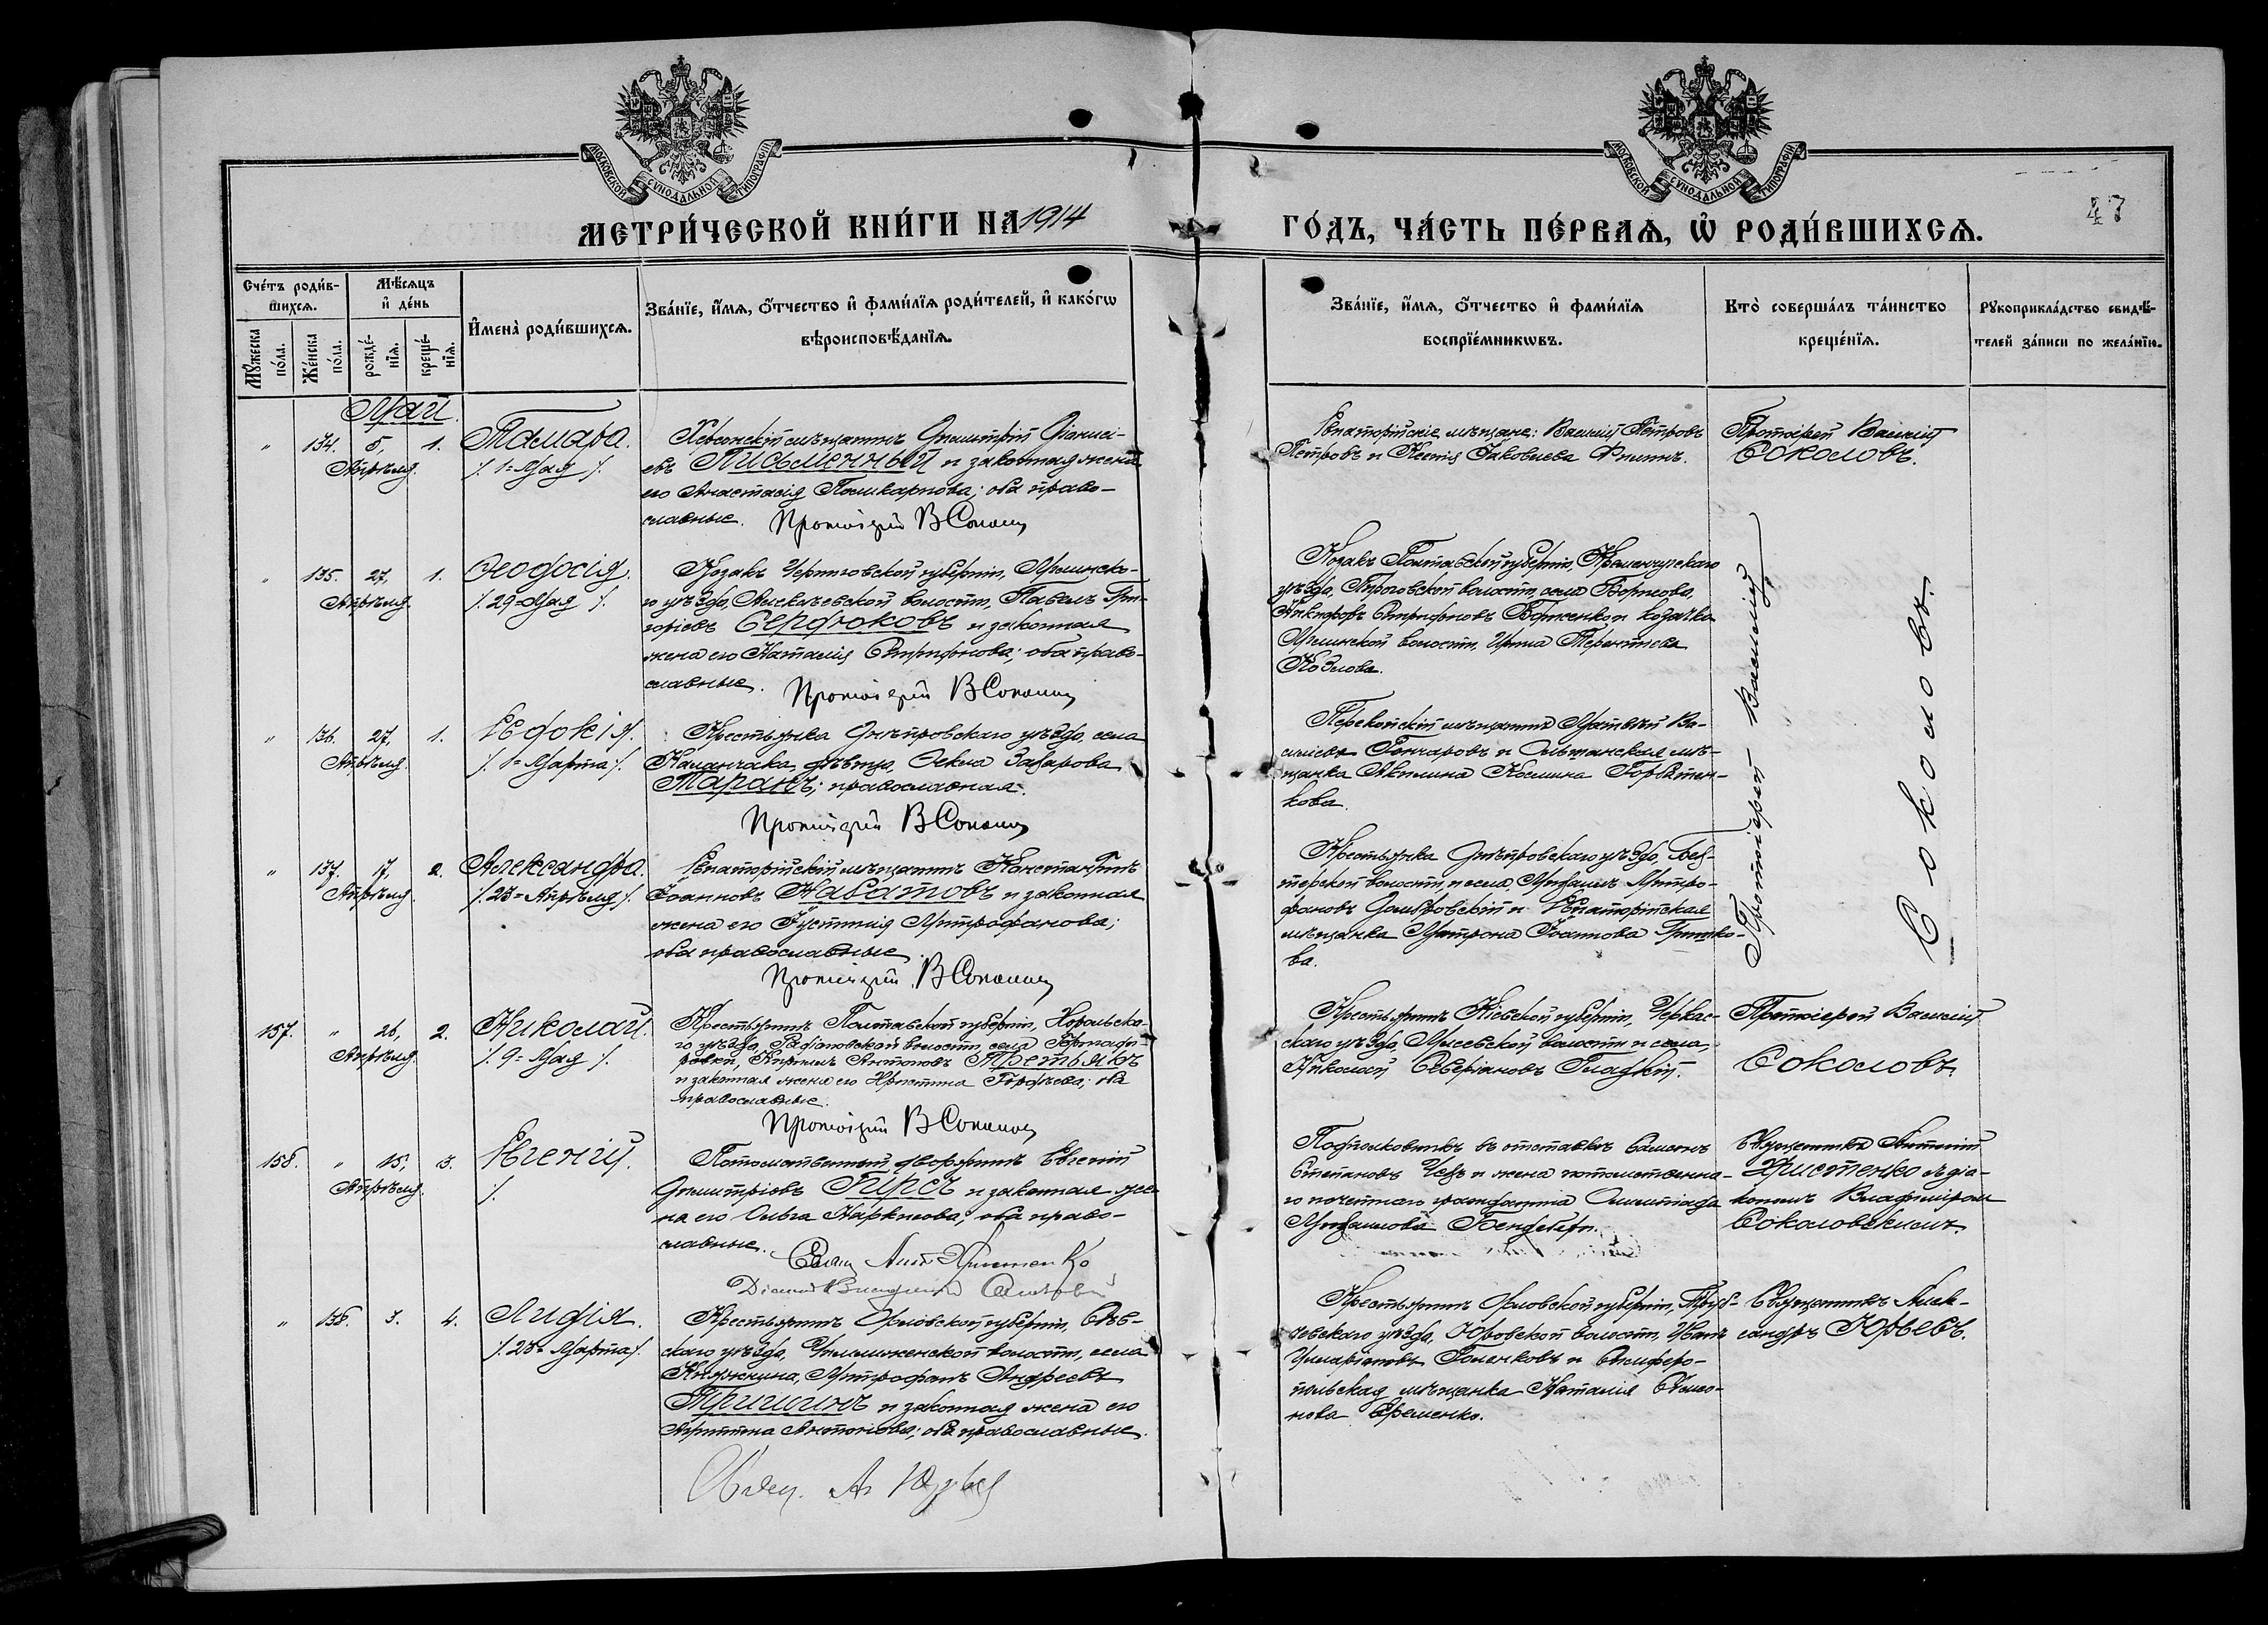 МОСКОВСКОЙ СѴНОДАЛЬНОЙ ТИПОГРАФІИ
МОСКОВСКОЙ СѴНОДАЛЬНОЙ ТИПОГРАФІИ
МЕТРИ́ЧЕСКОЙ КНИ́ГИ НА 1914
ГО́ДЪ, ЧА́СТЬ ПЕ́РВАѦ, Ѡ҆ РОДИ́ВШИХСѦ.
47
Сче́тъ роди́в-
шихсѧ.
Мꙋ́жеска по́ла.
Же́нска по́ла.
Мѣ́сѧцъ
и҆ де́нь
рожде́-
нїѧ.
креще́-
нїѧ.
И҆мена̀ роди́вшихсѧ.
Зва́нїе, и҆́мѧ, ѻ҆́тчество и҆ фами́лїѧ роди́телей, и҆ како́гѡ
вѣроисповѣ́данїѧ.
Зва́нїе, и҆́мѧ, ѻ҆́тчество и҆ фами́лїѧ
воспрїе́мникѡвъ.
Кто̀ соверша́лъ та́инство
креще́нїѧ.
Рꙋкоприкла́дство свидѣ́-
телей за́писи по жела́нїю.
Май.
" 134. 5, 1.
Апрѣля.
Тамара.
/. 1= Мая /.
Херсонскій мѣщанинъ Димитрій Діонисі-
евъ Письменный и законная жена
его Анастасія Поликарпова; оба право-
славные.
Протоіерей В Соколов
Евпаторійскіе мѣщане: Василій Петровъ
Петровъ и Ксенія Іаковлева
Протоіерей Василій
Соколовъ.
" 135. 27, 1.
Апрѣля.
Ѳеодосія.
/. 29= Мая /.
Козакъ Черниговской губерніи, Мглинска-
го уѣзда, волости, Павелъ Гри-
горіевъ Сердюковъ и законная
жена его Наталія Спиридонова; оба право-
славные.
Протоіерей В Соколов
Козакъ Полтавской губерніи, Кременчугскаго
уѣзда, волости, села
Никифоръ и козачка
Мглинской волости, Ирина Терентіева
Козлова.
Протоіерей Василій
Соколовъ.
" 136. 27, 1.
Апрѣля.
Евдокія.
/. 1= Марта /.
Крестьянка Днѣпровскаго уѣзда, села
Каланчака, дѣвица, Ѳекла Захарова
Таранъ; православная.
Протоіерей В Соколов
Перекопскій мѣщанинъ Матвѣй Ва-
сильевъ Гончаровъ и Ольшанская мѣ-
щанка Акилина Козмина Горбатен-
кова.
" 137. 17, 2.
Апрѣля.
Александра.
/. 23= Апрѣля /.
Евпаторійскій мѣщанинъ Константинъ
Іоанновъ Набатовъ и законная
жена его Іустинія Митрофанова;
оба православные.
Протоіерей В Соколов
Крестьянка Днѣпровскаго уѣзда,
волости, и села, Михаилъ Митро-
фановъ Домбровскій и Евпаторійская
мѣщанка Матрона Іоаннова Гришко-
ва.
157. " 26, 2.
Апрѣля.
Николай.
/. 9= Мая /.
Крестьянинъ Полтавской губерніи, Хорольска-
го уѣзда, волости, села
Кириллъ Антоновъ Третьякъ
и законная жена его Христина оба
православные.
Протоіерей В Соколов
Крестьянинъ Кіевской губерніи, Черкас-
скаго уѣзда, волости и села,
Николай Северіановъ Гладкій.
Протоіерей Василій
Соколовъ.
158. " 15, 3.
Апрѣля.
Евгеній.
/.
Потомственный дворянинъ Евгеній
Димитріевъ Гирсъ и законная же-
на его Ольга Наркисова; оба право-
славные.
Свящ Ант Христенко
Діаконъ Владимір
Подполковникъ въ отставкѣ
Степановъ и жена потомственна-
го почетнаго гражданина Олимпіада
Михаилова Бендебери.
Священникъ Антоній
Христенко съ діа-
кономъ Владиміром
Соколовскимъ.
" 138. 3. 4.
Лидія.
/. 23= Марта /.
Крестьянинъ Орловской губерніи, Сѣв-
скаго уѣзда, волости, села
Княжчина, Митрофанъ Андреевъ
Тришинъ и законная жена его
Антонова; оба православные.
Свящ. Ал Юрьев
Крестьянинъ Орловской губерніи, Труб-
чевскаго уѣзда, волости, Иванъ
Иларіоновъ Голенковъ и Симферо-
польская мѣщанка Наталія Симо-
нова Еременко.
Священникъ Алек-
сандръ Юрьевъ.